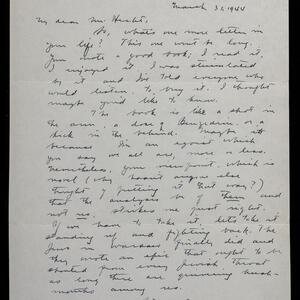 March 31, 1944
My dear Mr. Hecht,
So, what's one more letter in
your life? This one won't be long.
You wrote a good book; I read it.
I enjoyed it. I was stimulated
by it and I've told everyone who
would listen, to buy it. I thought
maybe you'd like to know.
The book is like a shot in
the arm, a dose of Benzedrine, or a
kick in the behind. Maybe it's
because I'm an egoist which
you say we all are, more or less.
Nevertheless, your viewpoint, which is
novel (why hasn't anyone else
thought of putting it that way?)
that the analysis be of them and
not us, strikes me just right.
If we have to take it, let's take it
standing up and fighting back. The
Jews in Warsaw finally did and
they wrote an epic that ought to be
shouted from every Jewish throat
as long as there are grinning
months among us.